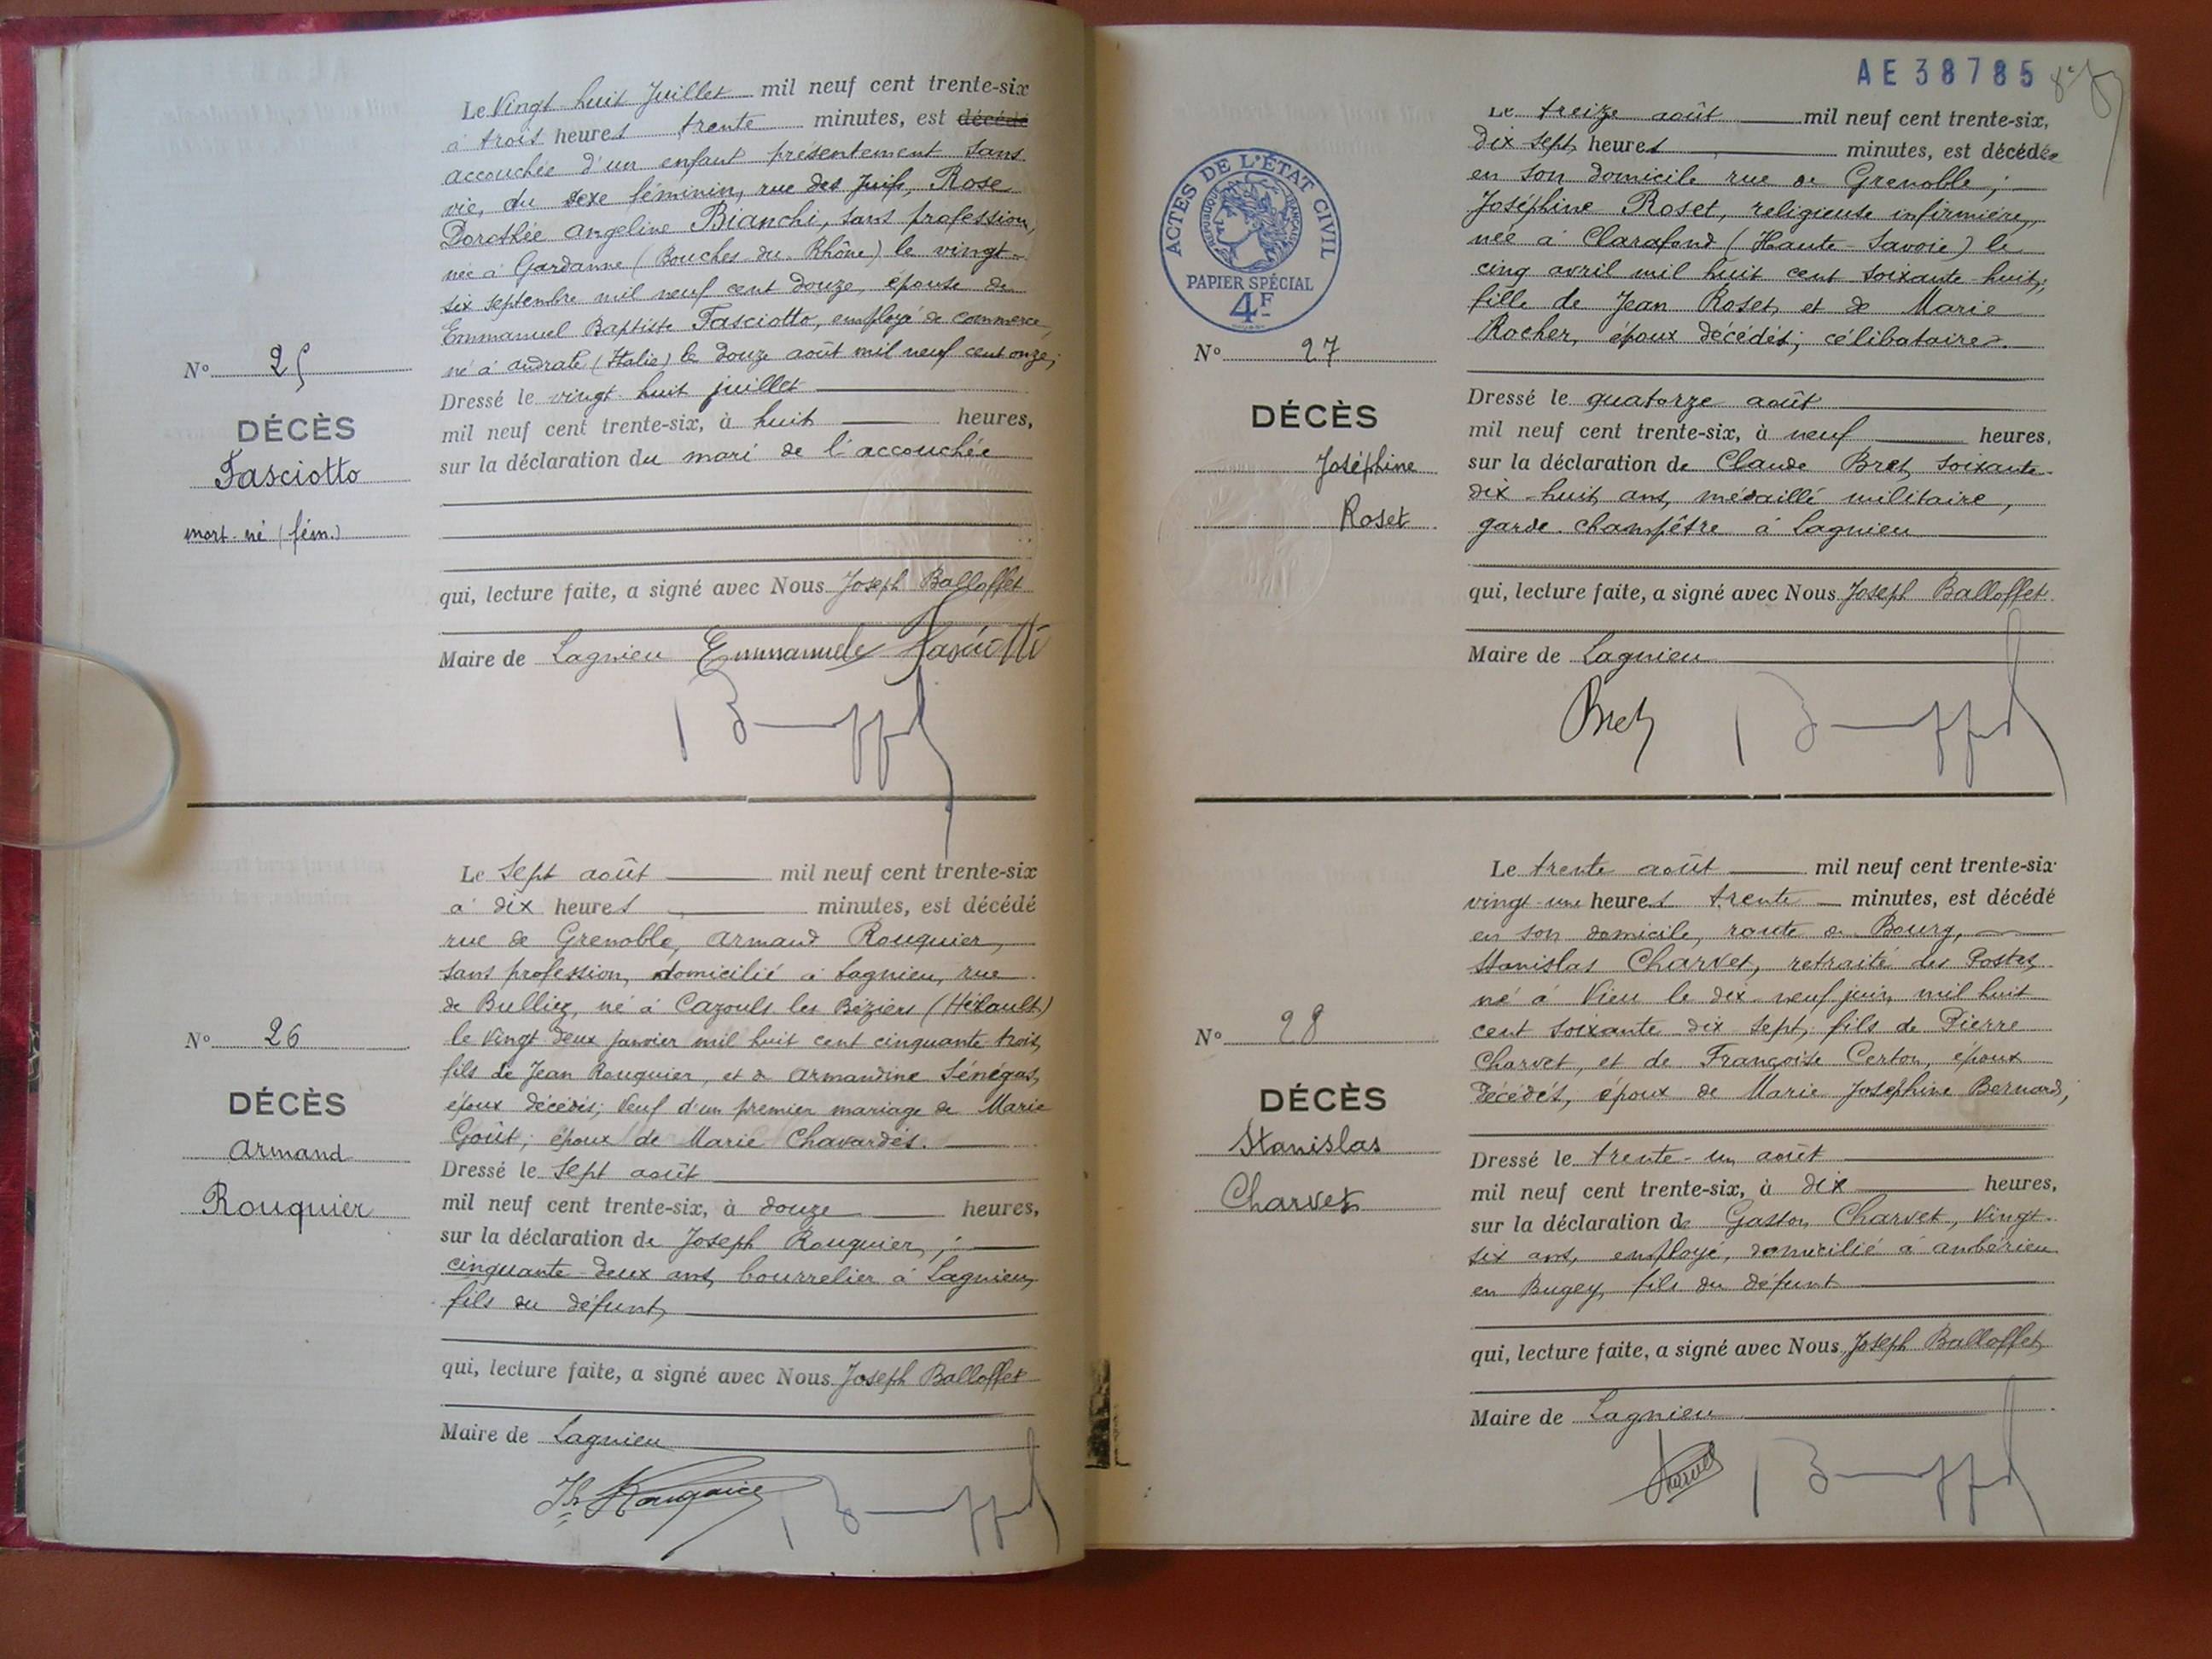 Le Vingt huit Juillet mil neuf cent trente-six
à trois heures trente minutes, est décédé
accouchée d'un enfant présentement sans
vie, du sexe féminin, rue des Juifs, Rose
Dorothée Angeline Bianchi, sans profession,
née à Gardanne (Bouches-du-Rhône) le vingt-
six septembre mil neuf cent douze, épouse de
Emmanuel Baptiste Fasciotto, employé de commerce,
né à Andrate (Italie) le douze août mil neuf cent onze;
N° 25
DÉCÈS
Fasciotto
mort-né (fém.)
Dressé le vingt-huit juillet
mil neuf cent trente-six, à huit heures,
sur la déclaration du mari de l'accouchée
qui, lecture faite, a signé avec Nous Joseph Balloffet
Maire de Lagnieu Emmanuele
Le sept août mil neuf cent trente-six
à dix heures minutes, est décédé
rue de Grenoble, Armand Rouquier,
sans profession, domicilié à Lagnieu, rue
de Bulliez, né à Cazouls les Béziers (Hérault)
le vingt deux janvier mil huit cent cinquante trois,
fils de Jean Rouquier, et de Armandine Sénégas,
époux décédés; Veuf d'un premier mariage de Marie
Goût; époux de Marie Chavardès.
N° 26
DÉCÈS
Armand
Rouquier
Dressé le sept août
mil neuf cent trente-six, à douze heures,
sur la déclaration de Joseph Rouquier,
cinquante-deux ans, bourrelier à Lagnieu,
fils du défunt,
qui, lecture faite, a signé avec Nous Joseph Balloffet
Maire de Lagnieu
AE38785
ACTES DE L'ÉTAT CIVIL
RÉPUBLIQUE FRANÇAISE
PAPIER SPÉCIAL
4F
Le treize août mil neuf cent trente-six,
dix sept heures minutes, est décédée
en son domicile rue de Grenoble;
Joséphine Roset, religieuse infirmière,
née à Clarafond (Haute-Savoie) le
cinq avril mil huit cent soixante huit;
fille de Jean Roset, et de Marie
Rocher, époux décédés; célibataire.
N° 27
DÉCÈS
Joséphine
Roset
Dressé le quatorze août
mil neuf cent trente-six, à neuf heures,
sur la déclaration de Claude Bret, soixante-
dix-huit ans, médaillé militaire,
garde-champêtre à Lagnieu
qui, lecture faite, a signé avec Nous Joseph Balloffet
Maire de Lagnieu
Bret
Le trente août mil neuf cent trente-six
vingt-une heures trente minutes, est décédé
en son domicile, route de Bourg,
Stanislas Charvet, retraité des Postes,
né à Vieu le dix-neuf juin mil huit
cent soixante dix sept, fils de Pierre
Charvet, et de Françoise Certon, époux
décédés, époux de Marie Josephine Bernard;
N° 28
DÉCÈS
Stanislas
Charvet
Dressé le trente-un août
mil neuf cent trente-six, à dix heures,
sur la déclaration de Gaston Charvet, vingt-
six ans, employé, domicilié à Ambérieu
en Bugey, fils du défunt
qui, lecture faite, a signé avec Nous Joseph Balloffet
Maire de Lagnieu